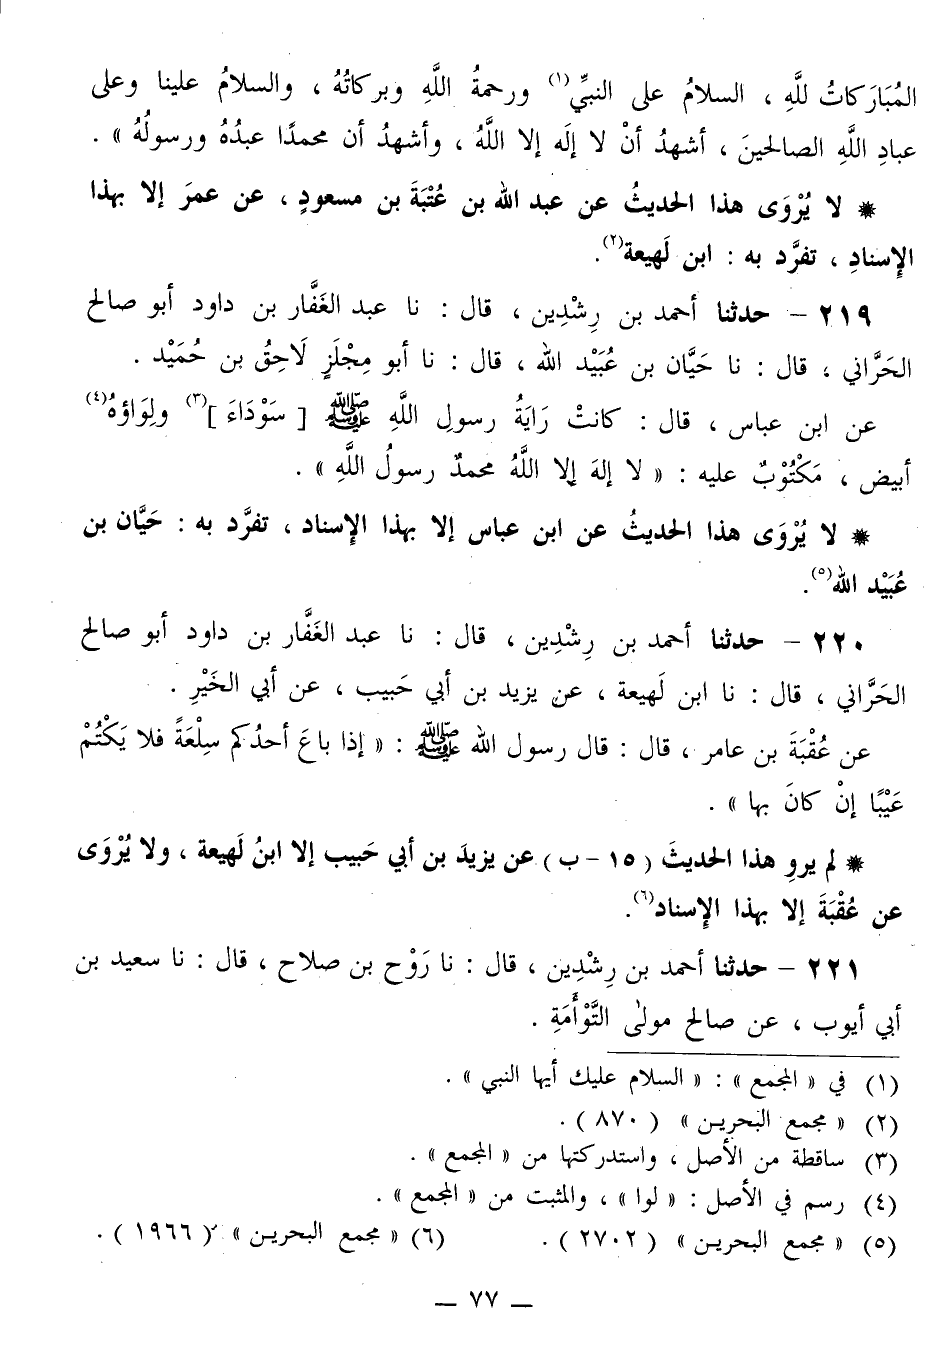 المُبَارَكاتُ للَّهِ ، السلامُ على النبيِّ(١) ورحمةُ اللَّهِ وبركاتُهُ ، والسلامُ علينا وعلى
عبادِ اللَّهِ الصالحينَ ، أشهدُ أنْ لا إلَه إلا اللَّهُ ، وأشهدُ أن محمدًا عبدُهُ ورسولُهُ » .
* لا يُرْوَى هذا الحديثُ عن عبد الله بن عُتْبَةَ بن مسعودٍ ، عن عمرَ إلا بهذا
الإسنادِ ، تفرَّد به : ابن لَهيعة(٢).
٢١٩ – حدثنا أحمد بن رِشْدِين ، قال : نا عبد الغَفَّار بن داود أبو صالح
الحَرَّاني ، قال : نا حَيَّان بن عُبَيْد الله ، قال : نا أبو مِجْلَزٍ لَاحِقُ بن حُمَيْد .
عن ابن عباس ، قال : كانتْ رَايَةُ رسولِ اللَّهِ ﷺ [ سَوْدَاءَ ](٣) ولِوَاؤهُ(٤)
أبيض ، مَكْتُوْبٌ عليه : « لا إلهَ إلا اللَّهُ محمدٌ رسولُ اللَّهِ » .
* لا يُرْوَى هذا الحديثُ عن ابن عباس إلا بهذا الإسناد ، تفرَّد به : حَيَّان بن
عُبَيْد الله(٥).
٢٢٠ – حدثنا أحمد بن رِشْدِين ، قال : نا عبد الغَفَّار بن داود أبو صالح
الحَرَّاني ، قال : نا ابن لَهيعة ، عن يزيد بن أبي حَبيب ، عن أبي الخَيْرِ .
عن عُقْبَةَ بن عامر ، قال : قال رسول الله ﷺ : « إذا باعَ أحدُكم سِلْعَةً فلا يَكْتُمْ
عَيْبًا إنْ كانَ بها » .
* لم يروِ هذا الحديثَ ( ١٥ - ب ) عن يزيدَ بن أبي حَبيب إلا ابنُ لَهيعة ، ولا يُرْوَى
عن عُقْبَةَ إلا بهذا الإسناد(٦).
٢٢١ – حدثنا أحمد بن رِشْدِين ، قال : نا رَوْح بن صلاح ، قال : نا سعيد بن
أبي أيوب ، عن صالح مولىٰ التَّوْأَمَةِ .
(١) في « المجمع » : « السلام عليك أيها النبي » .
(٢) « مجمع البحرين » ( ٨٧٠ ) .
(٣) ساقطة من الأصل ، واستدركتها من « المجمع » .
(٤) رسم في الأصل : « لوا » ، والمثبت من « المجمع » .
(٥) « مجمع البحرين » ( ٢٧٠٢ ) . (٦) « مجمع البحرين » ( ١٩٦٦ ) .
— ٧٧ —